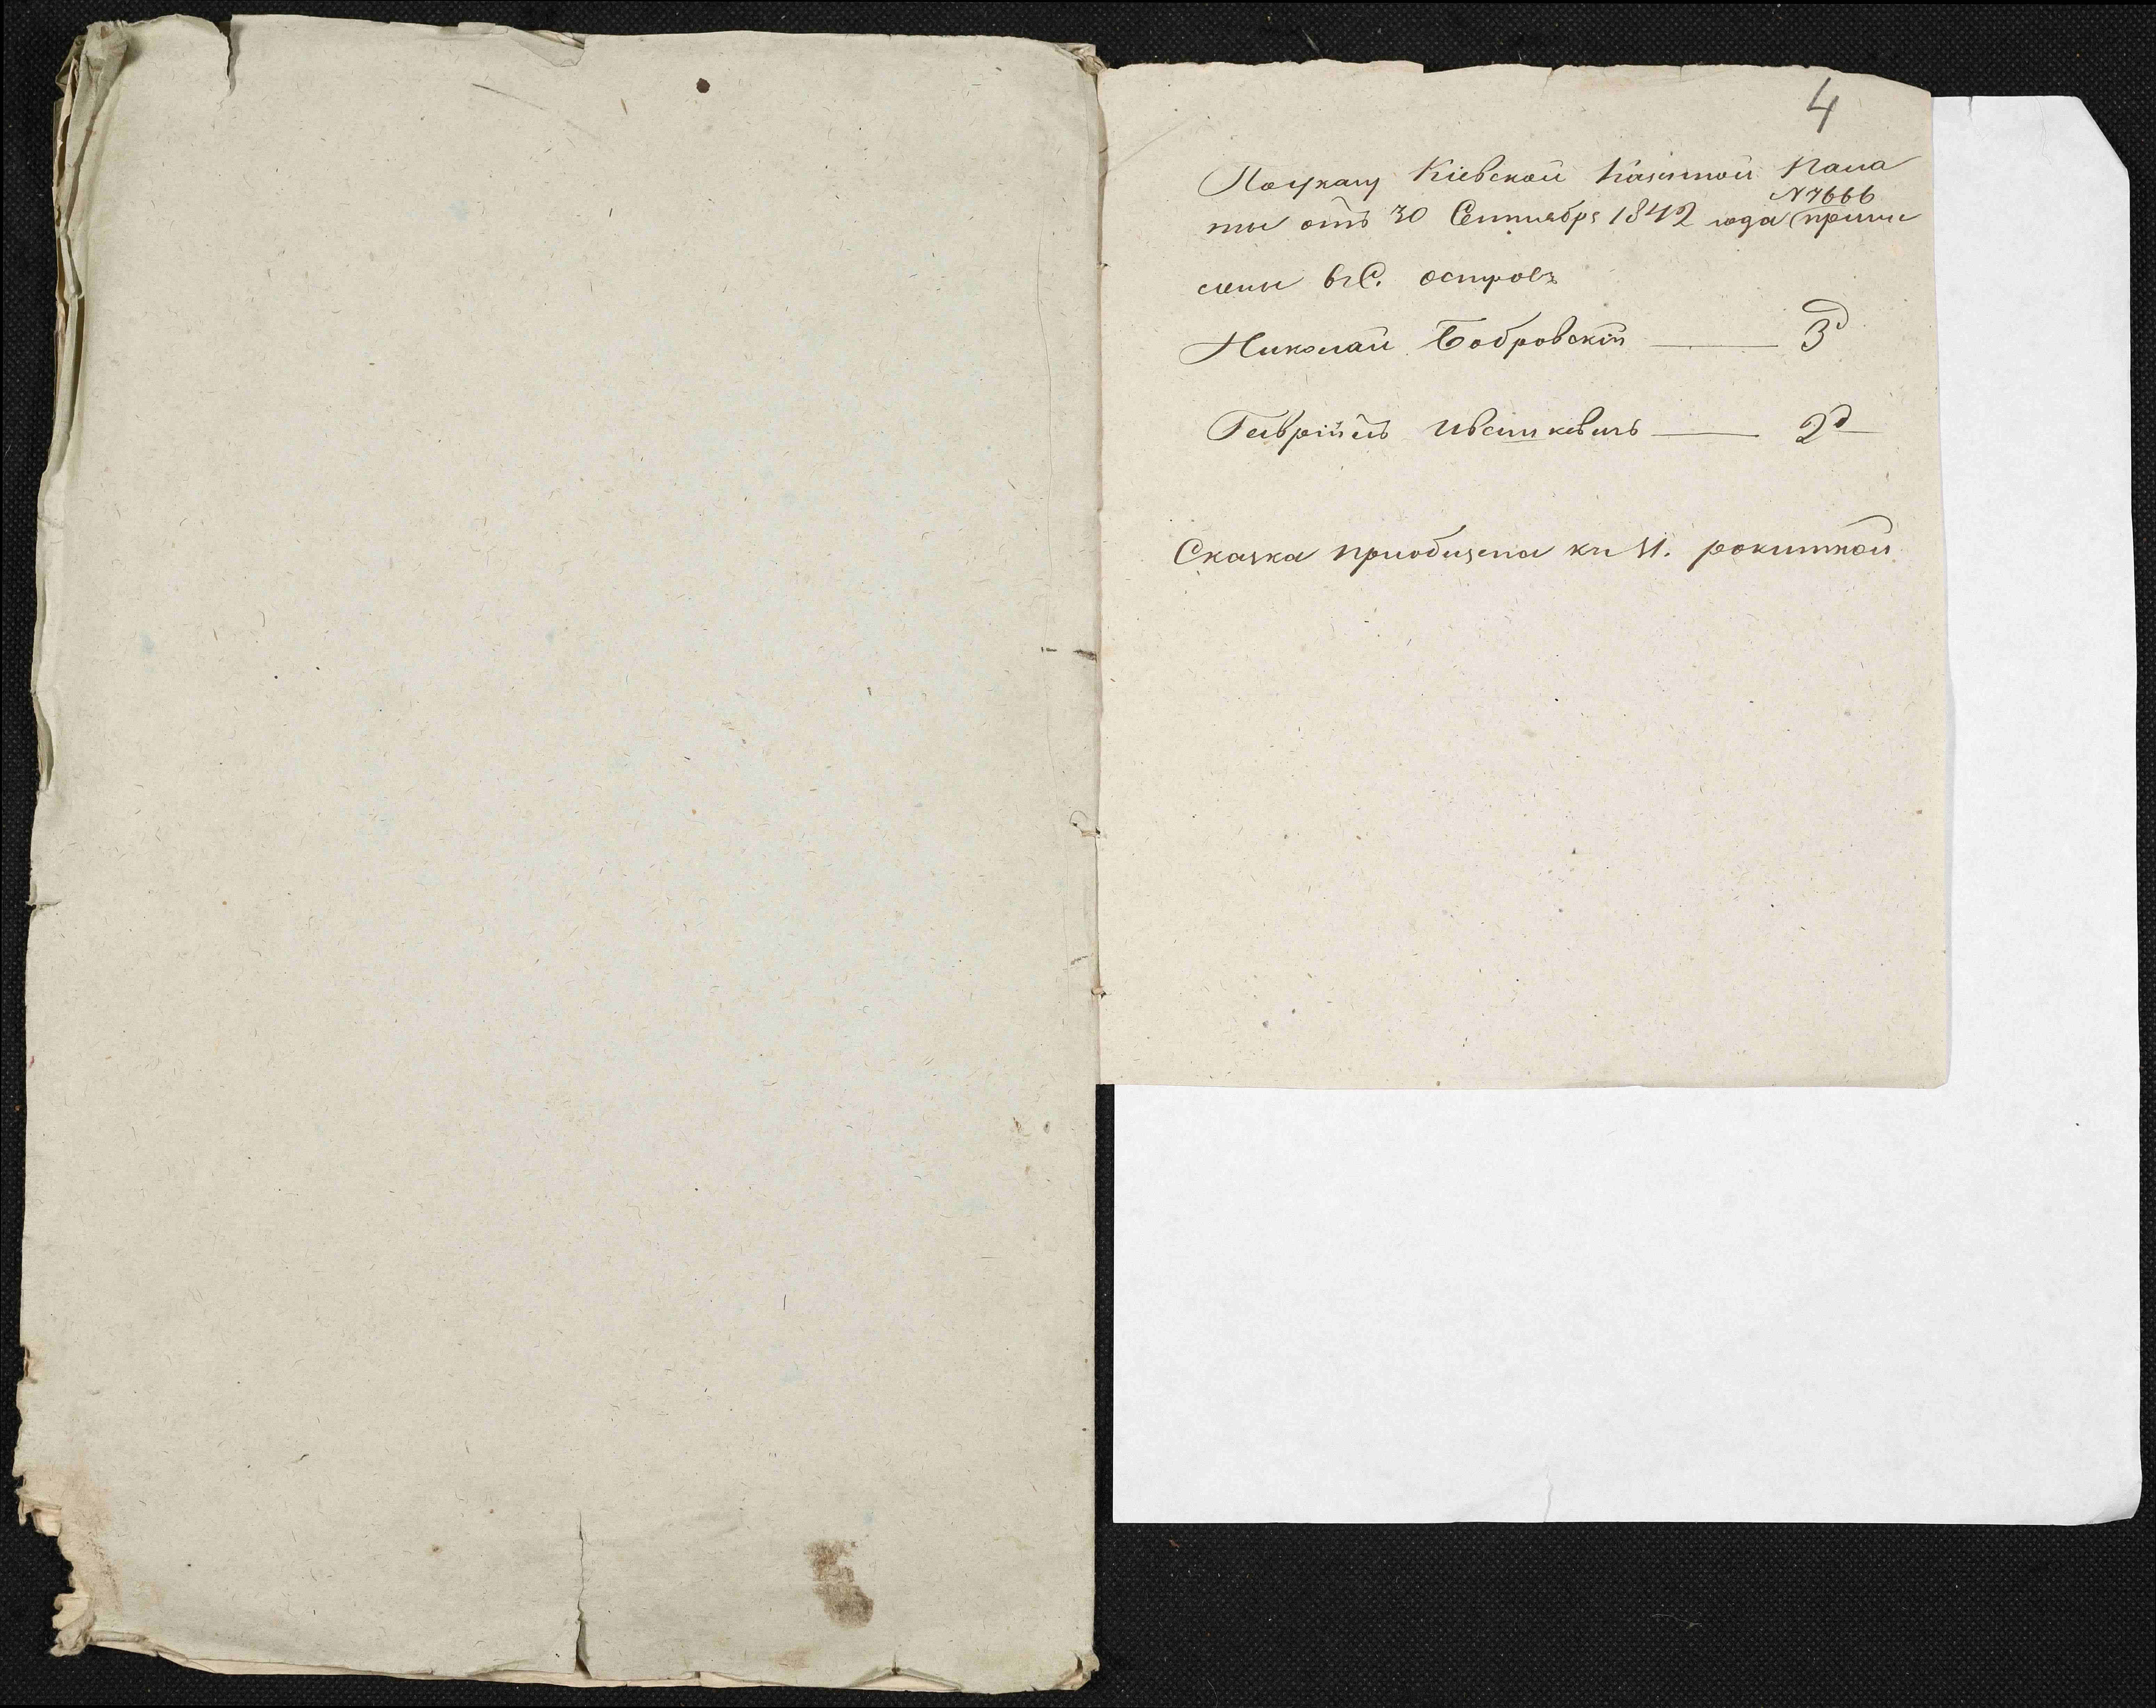 4
По указу Кіевской Казенной Пала
№ 7666
ты отъ 30 Сентября 1842 года причи
слены въ С. островъ
Николай Бобровскій — 3 д
Гавріилъ Ивашкевичъ — 2 д
Сказка приобщена къ М. рокитной